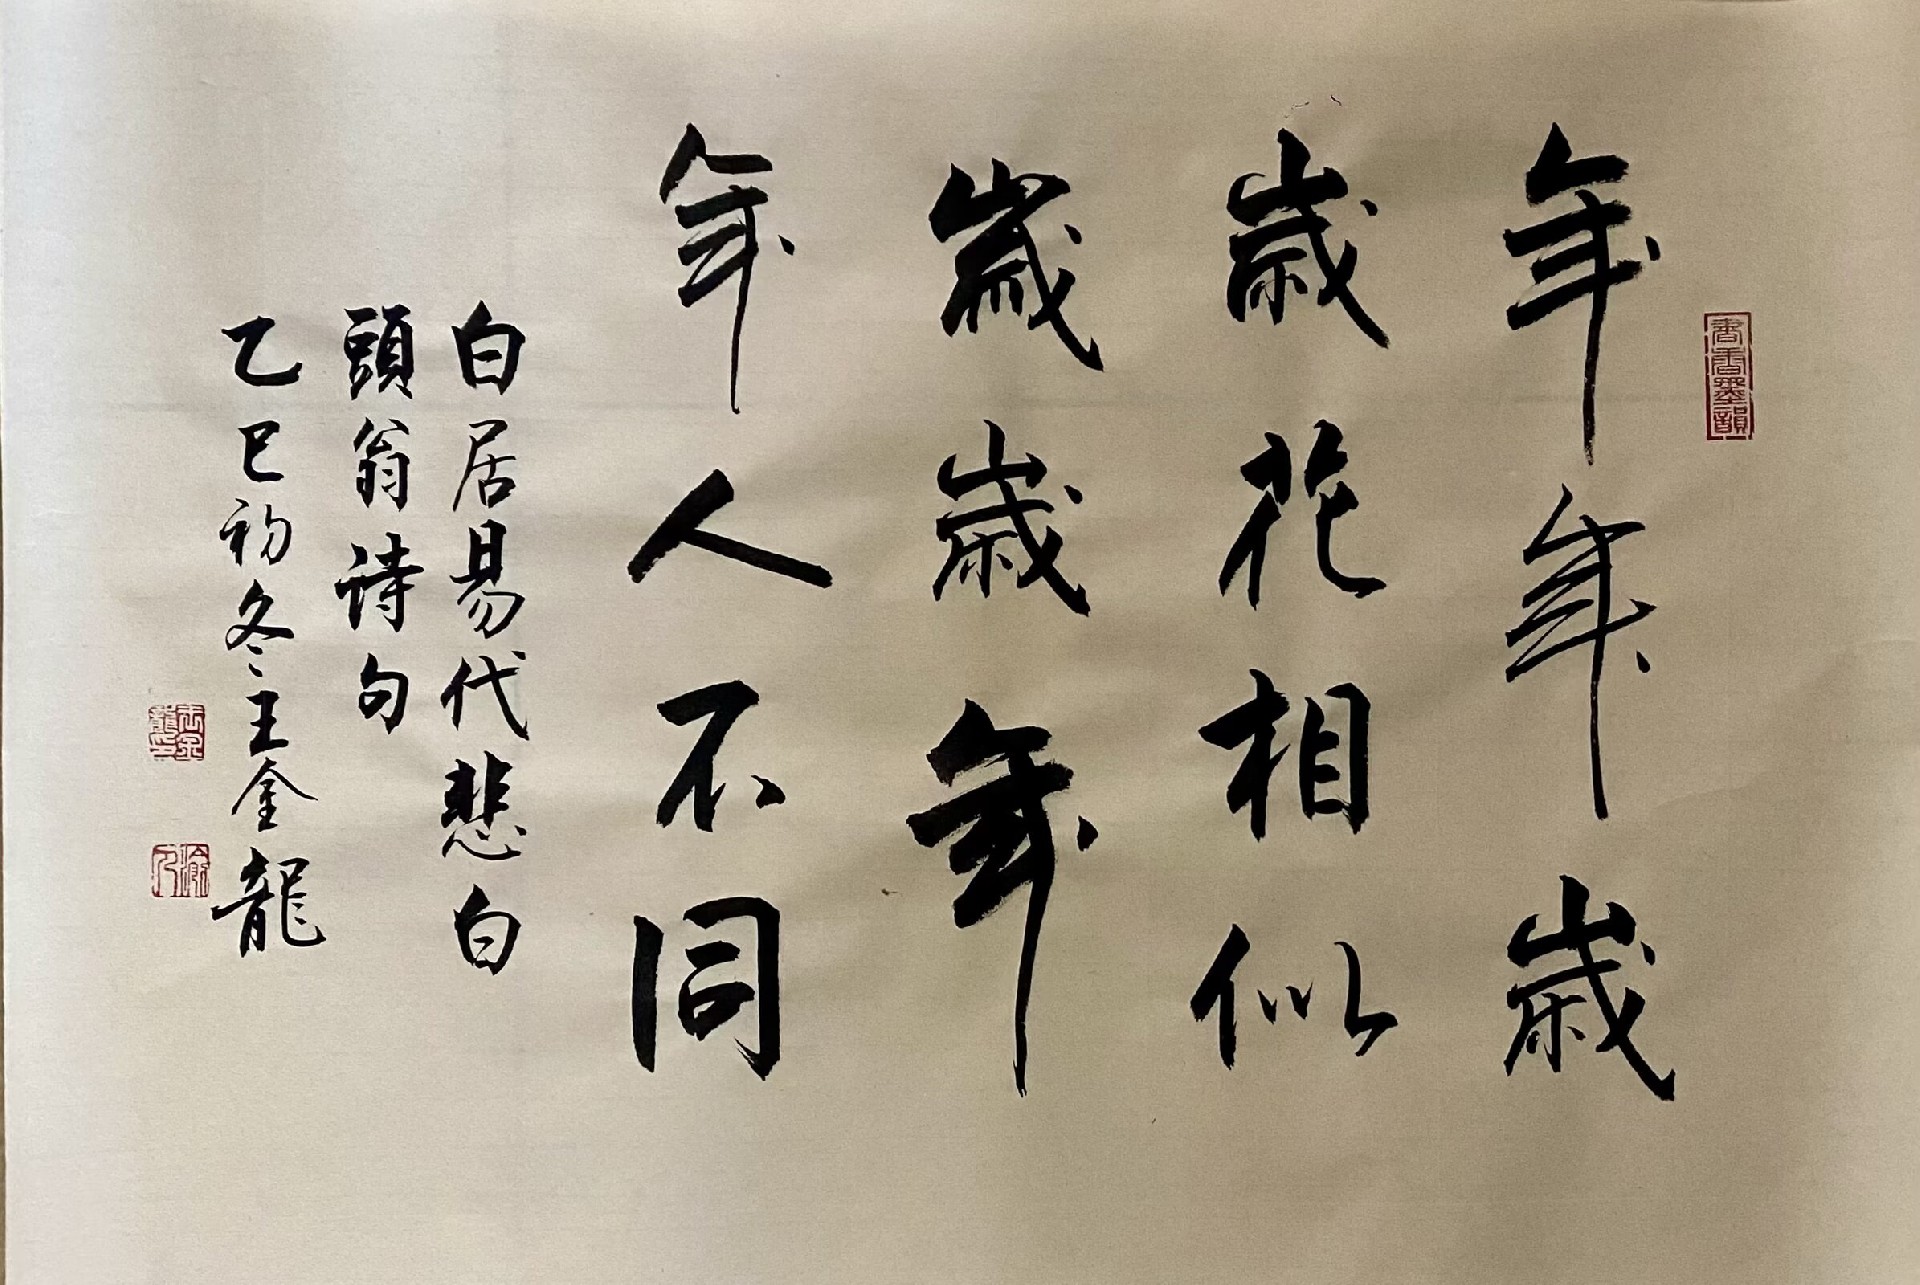 書香墨韻
年年歲
歲花相似
歲歲年
年人不同
白居易代悲白
頭翁诗句
乙巳初冬王金龍